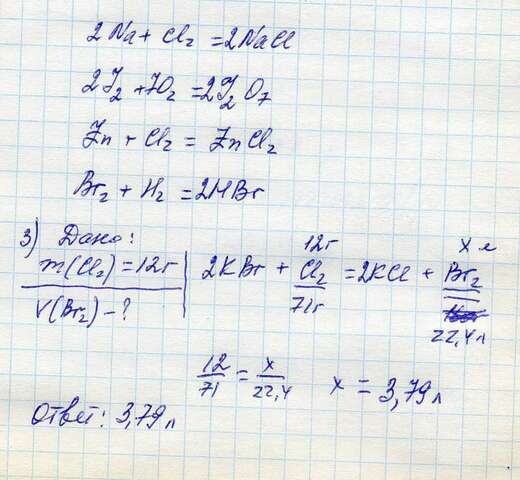 2Na + Cl₂ = 2NaCl
2I₂ + 7O₂ = 2I₂O₇
Zn + Cl₂ = ZnCl₂
Br₂ + H₂ = 2HBr
3) Дано:
m(Cl₂) = 12г
V(Br₂) - ?
12г х л
2KBr + Cl₂ = 2KCl + Br₂
71г
22,4л
12/71 = x/22,4 x = 3,79л
Ответ: 3,79л